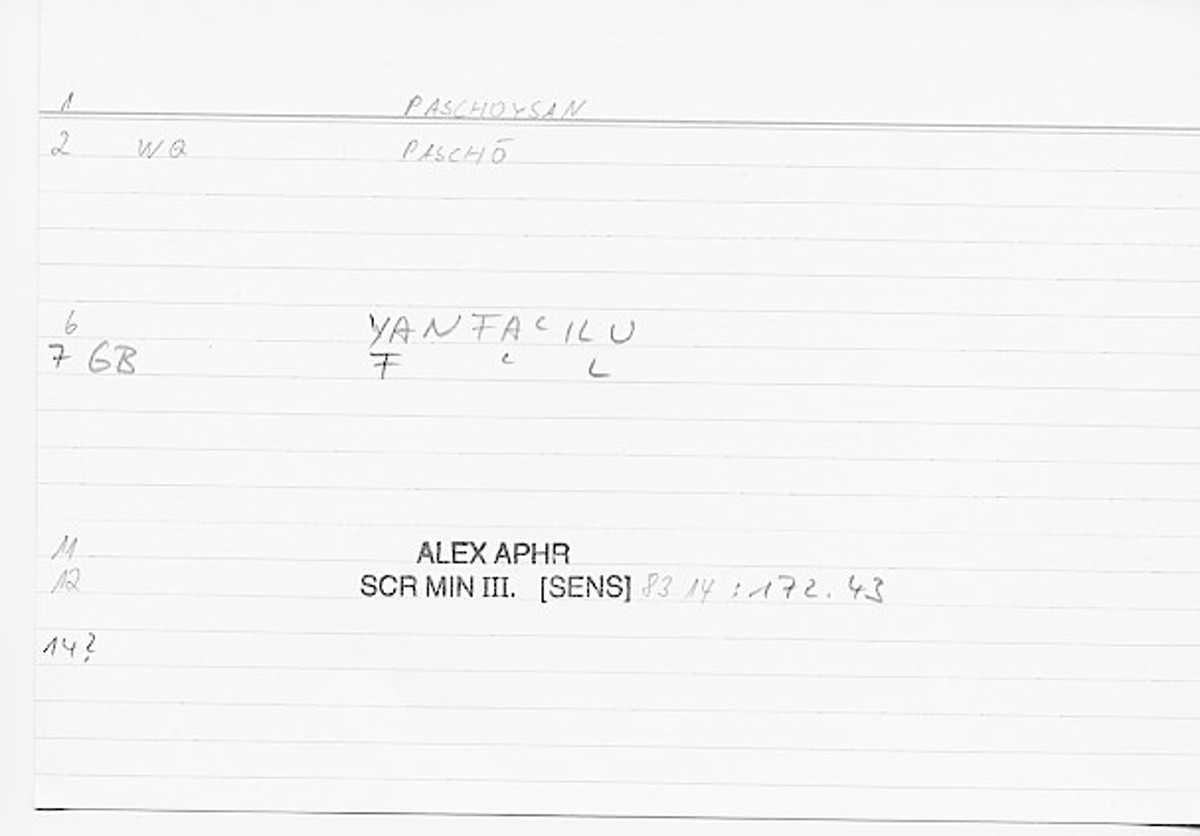 1 PASCHOYSAN
2 WQ PASCHŌ
6 YANFAᶜILU
7 GB F ᶜ L
11 ALEX APHR
12 SCR MIN III. [SENS] 83 14 : 172. 43
14?